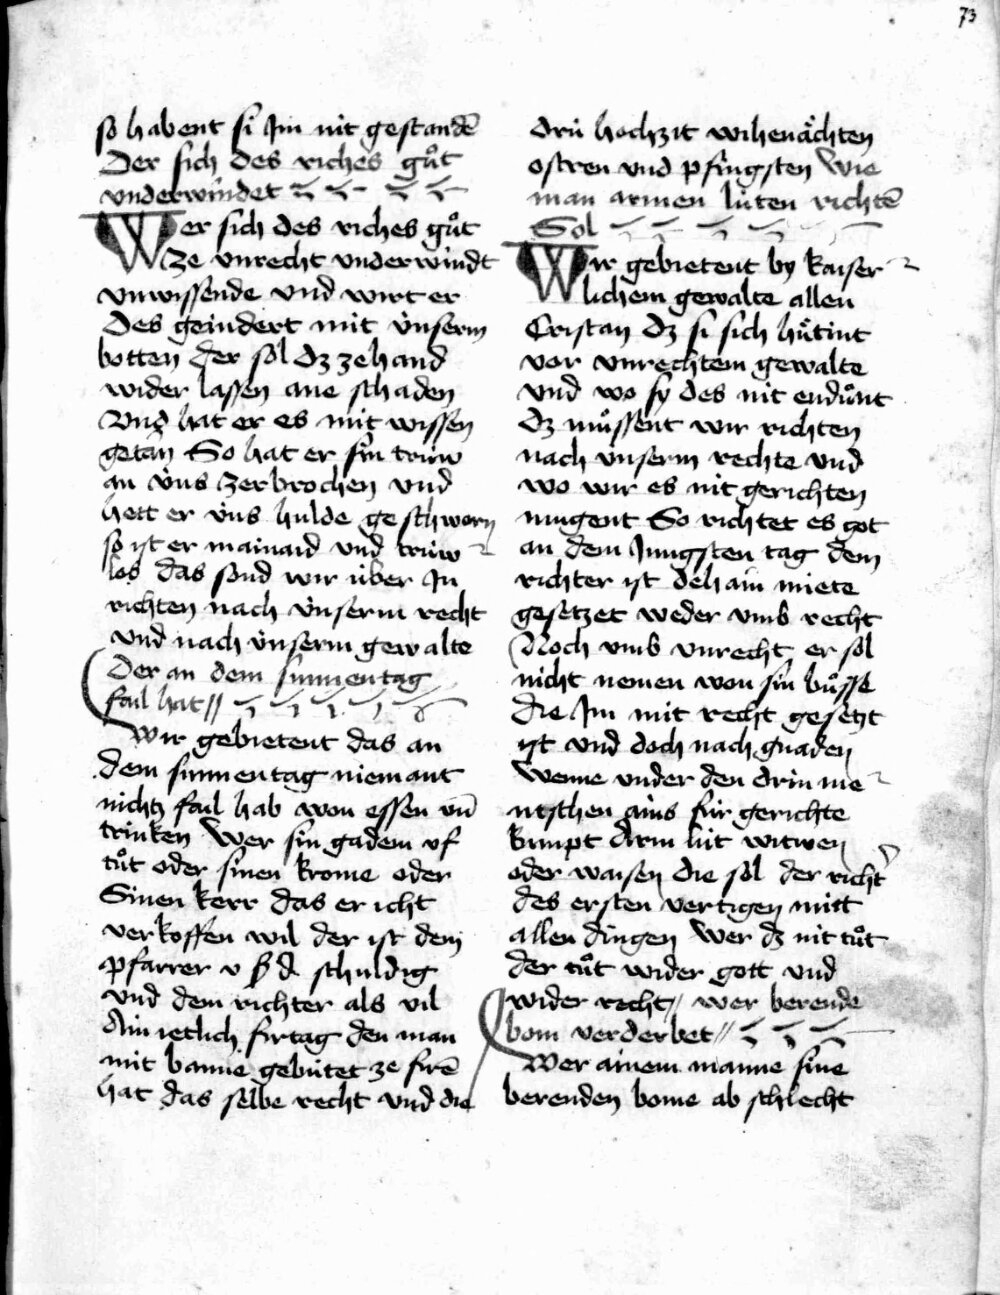 73
so habent si Im nit gestandē
Der sich des riches gůt
vnderwindet
Wer sich des riches gůt
ze vnrecht vnderwindt
vnwissende vnd wirt er
Des geindert mit v̇nserm
botten der sol dz zehand
wider lassen ane schaden
Vnd hat er es mit wissen
getan So hat er sin trüw
an v̇ns zerbrochen vnd
hett er v̇ns hulde geschworn
so ist er mainaid vnd trüw
los das sond wir über In
richten nach v̇nserm recht
vnd nach v̇nserm gewalte
Der an dem sunnentag
fail hat
Wir gebietent das an
dem sunnentag niemant
nichtz fail hab won essen vn̄
trinken Wer sin gadem vf
tůt oder sinen krome oder
Sinen kerr das er icht
verkoffen wil der ist dem
pfarrer v ß d schuldig
vnd dem richter als vil
Ain ietlich firtag den man
mit banne gebütet ze firē
hat das selbe recht vnd die
drü hochzit wihenächten
ostren vnd pfingsten Wie
man armen lüten richtē
Sol
Wir gebietent by kaiser
lichem gewalte allen
Cristan dz si sich hůtint
vor vnrechtem gewalte
vnd wo sy des nit endůnt
dz můssent wir richten
nach v̇nserm rechte vnd
wo wir es nit gerichten
mugent So richtet es got
an dem Jungsten tag dem
richter ist dehain miete
gesetzet weder vmb recht
Noch vmb vnrecht er sol
nicht nemen won sin bůsse
die Im mit recht gesetzt
ist vnd doch nach gnaden
Wenne vnder den drin me
ntschen ains für gerichte
kumpt Arm lüt witwen
oder waisen die sol der richt'
des ersten vertigen mitt
allen dingen Wer dz nit tůt
der tůt wider gott vnd
wider recht wer berende
bom verderbet
Wer ainem manne sine
berenden bome ab schlecht